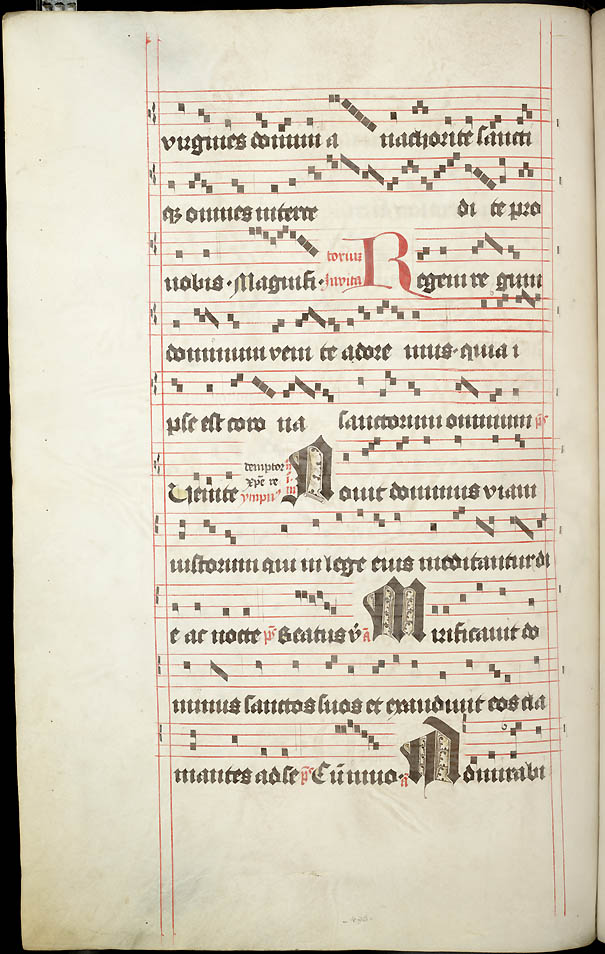 virgines domini a nachorite sancti
qz omnes interce di te pro
nobis · Magnifi · torium Invita Regem re gum
dominum veni te adore mus · quia i
pse est coro na sanctorum omnium ps
Venite demptor xpe re ympn9 Novit dominus viam
iustorum qui in lege eius meditantur di
e ac nocte ps Beatus v A Mirificavit do
minus sanctos suos et exaudivit eos cla
mantes ad se ps Cum invo · a Admirabi